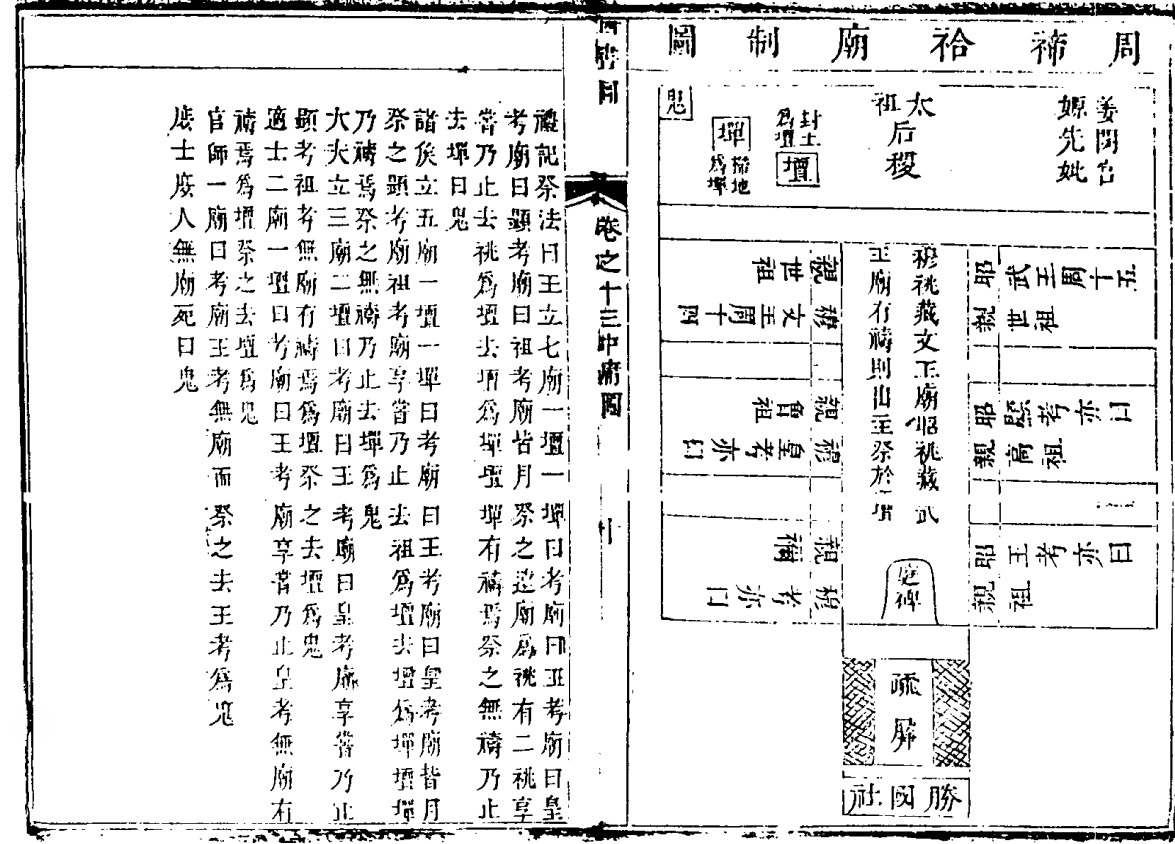 周禘祫廟制圖
姜閟宮
嫄先妣
太祖后稷
封土
爲壇
壇
墠
掃地
爲墠
鬼
昭親
武王周十五
世祖
昭親
顯考亦曰
高祖
昭親
王考亦曰
祖
穆祧藏文王廟昭祧藏武
王廟有禱則出主祭於壇
庭碑
穆親
文王周十四
世祖
穆親
皇考亦曰
曾祖
穆親
考亦曰
禰
疏屏
勝國社
卷之十三中庸圖
禮記祭法曰王立七廟一壇一墠曰考廟曰王考廟曰皇
考廟曰顯考廟曰祖考廟皆月祭之遠廟爲祧有二祧享
嘗乃止去祧爲壇去壇爲墠壇墠有禱焉祭之無禱乃止
去墠曰鬼
諸侯立五廟一壇一墠曰考廟曰王考廟曰皇考廟皆月
祭之顯考廟祖考廟享嘗乃止去祖爲壇去壇爲墠壇墠
乃禱焉祭之無禱乃止去墠爲鬼
大夫立三廟二壇曰考廟曰王考廟曰皇考廟享嘗乃止
顯考祖考無廟有禱焉爲壇祭之去壇爲鬼
適士二廟一壇曰考廟曰王考廟享嘗乃止皇考無廟有
禱焉爲壇祭之去壇爲鬼
官師一廟曰考廟王考無廟而祭之去王考爲鬼
庶士庶人無廟死曰鬼